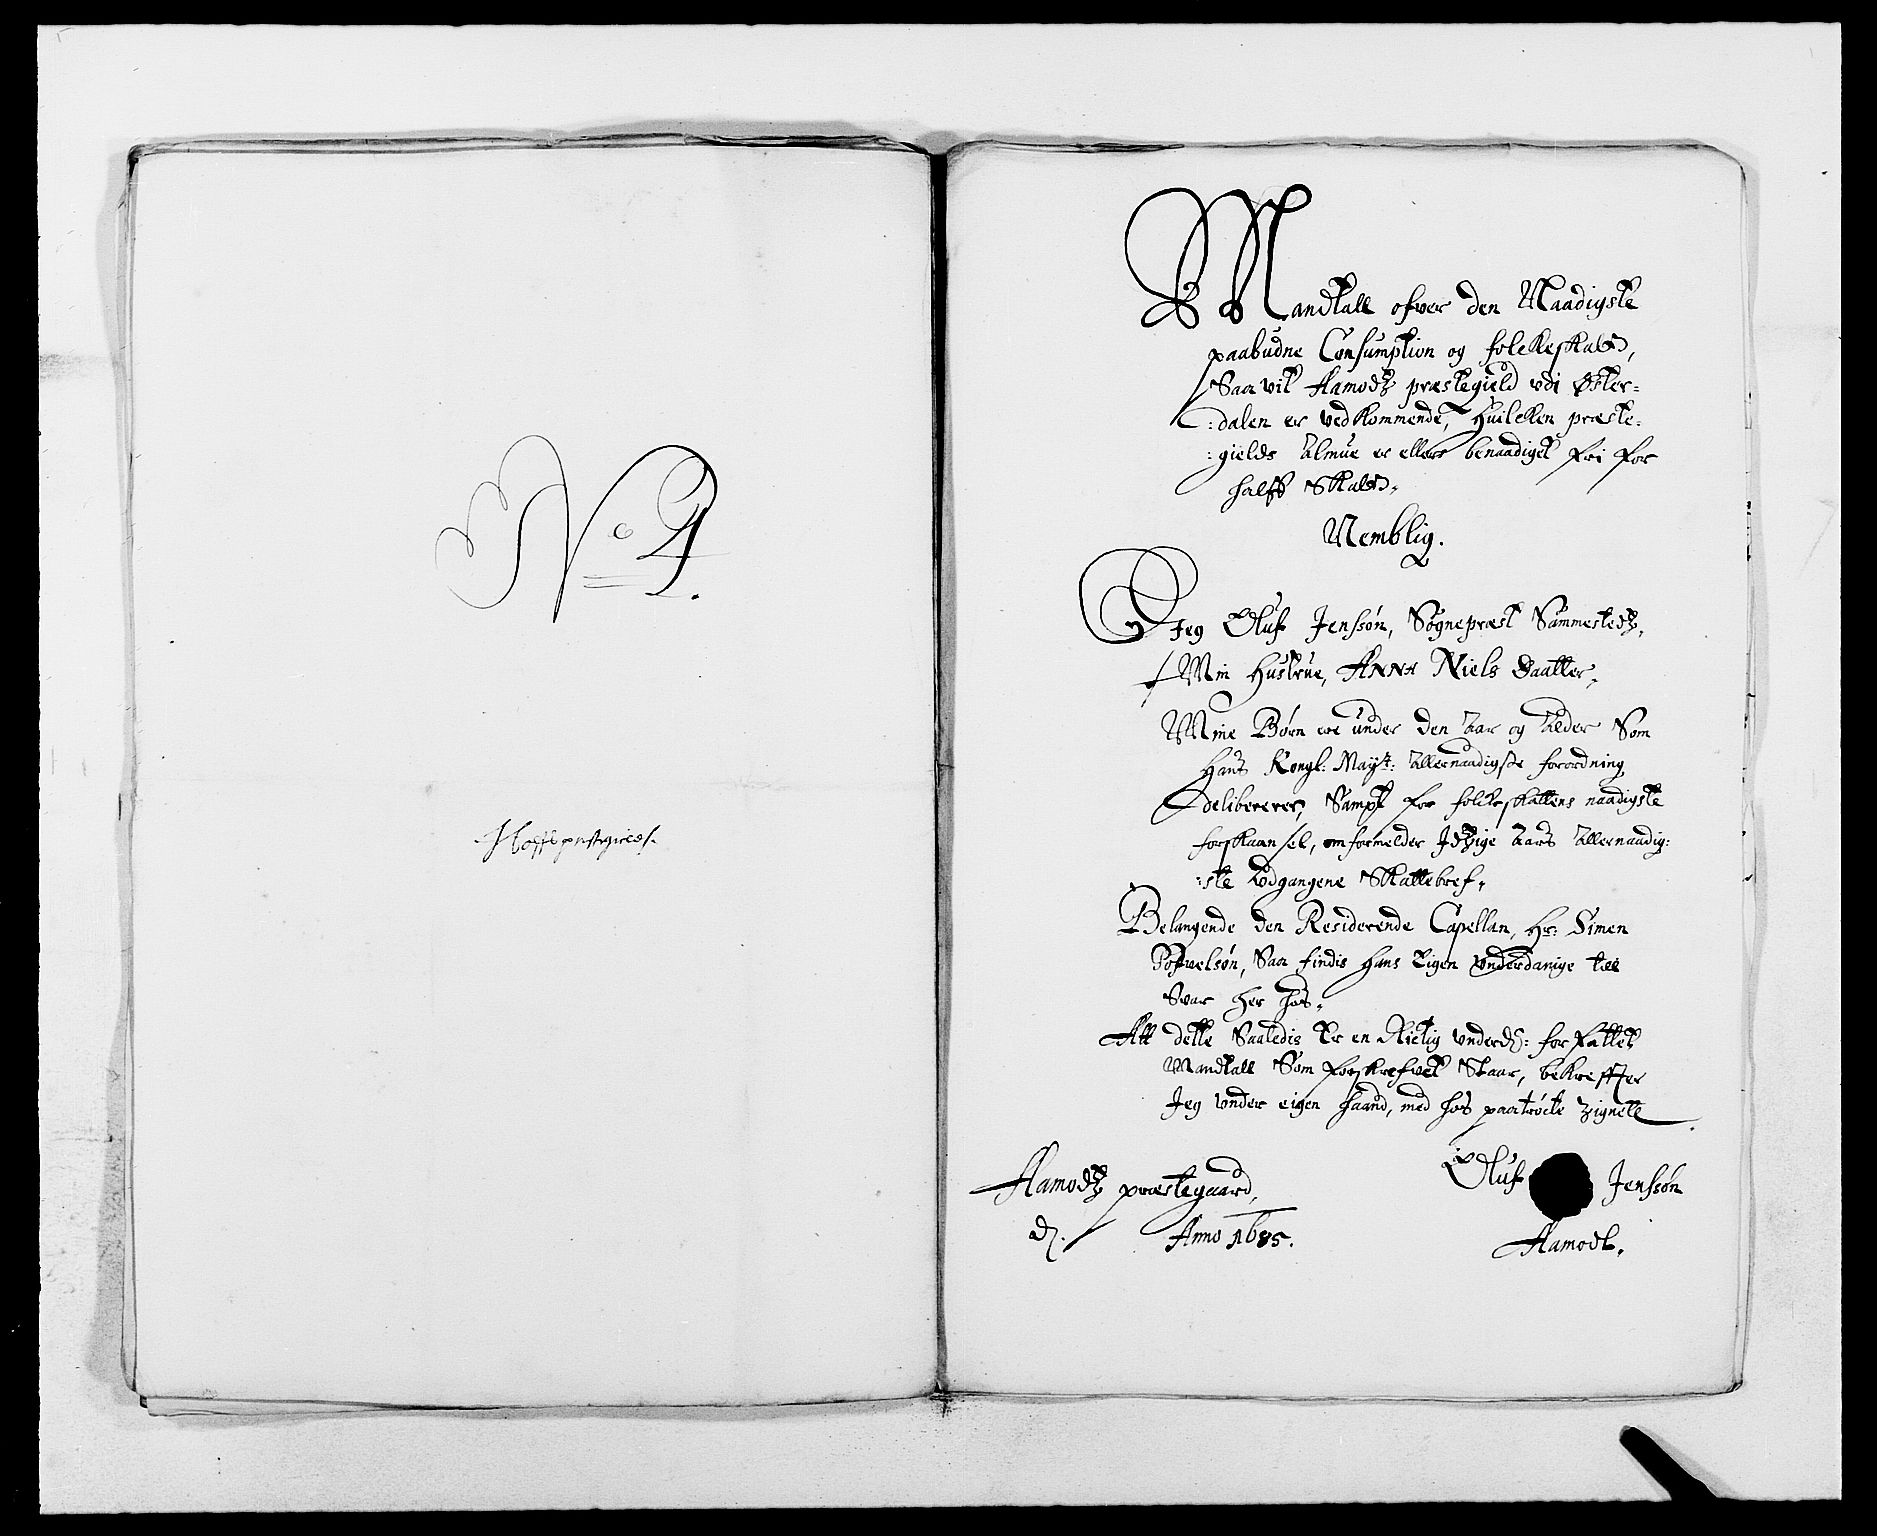 No 4.
Hoffs prestegield.
Mandtall ofver den Naadigste
paabudne Consumption og folckeskatt,
Saavit Aamodtz præstegield udi Øster=
:dalen er vedkommende, Huilcken præste=
:gields Almue er ellers benaadiget fri for
half Skatt.
Nemblig.
Jeg Oluf Jenssøn, Sognepræst Sammestedtz,
Min Hustrue, Anna Niels Daatter,
Mine Børn ere under den Aar og Alder Som
Hans Kongl: Mayst: Allernaadigste forordning
delibererer, Sampt for folckeskattens naadigste
forskaansel, om formelder Jdtzige Aars Allernaadig:
:ste Udgangene Skattebref,
Belangende den Residerende Capellan, Hr: Simen
Pofvelsøn, Saa findis Hans Eigen Underdanige till
Svar her hos,
Att dette Saaledis Er en Rictig underd: forfattet
Mandtall Som forskrefvet Staar, bekreffter
Jeg under eigen haand, med hos paatrøcte Zignete
Aamodtz præstegaard,
d. Anno 1685.
Oluf Jenssøn
Aamodt.